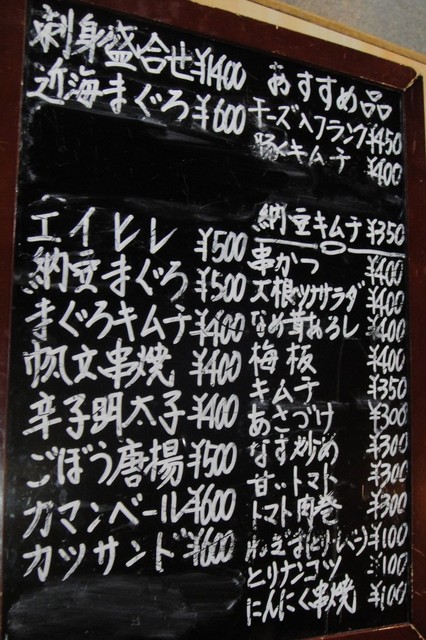 刺身盛合せ ¥1400
近海まぐろ ¥600
エイヒレ ¥500
納豆まぐろ ¥500
まぐろキムチ ¥400
帆立串焼 ¥400
辛子明太子 ¥400
ごぼう唐揚 ¥500
カマンベール ¥600
カツサンド ¥600
おすすめ品
チーズ入フランク ¥450
豚キムチ ¥400
納豆キムチ ¥350
串かつ ¥400
大根サラダ ¥400
なめ茸おろし ¥400
梅板 ¥400
キムチ ¥350
あさづけ ¥300
なす炒め ¥300
甘いトマト ¥300
トマト肉巻 ¥300
¥100
とりナンコツ ¥100
にんにく串焼 ¥100